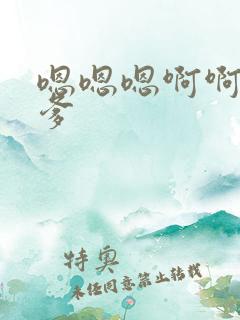 嗯嗯嗯啊啊
爹
特奥
未经同意禁止转载